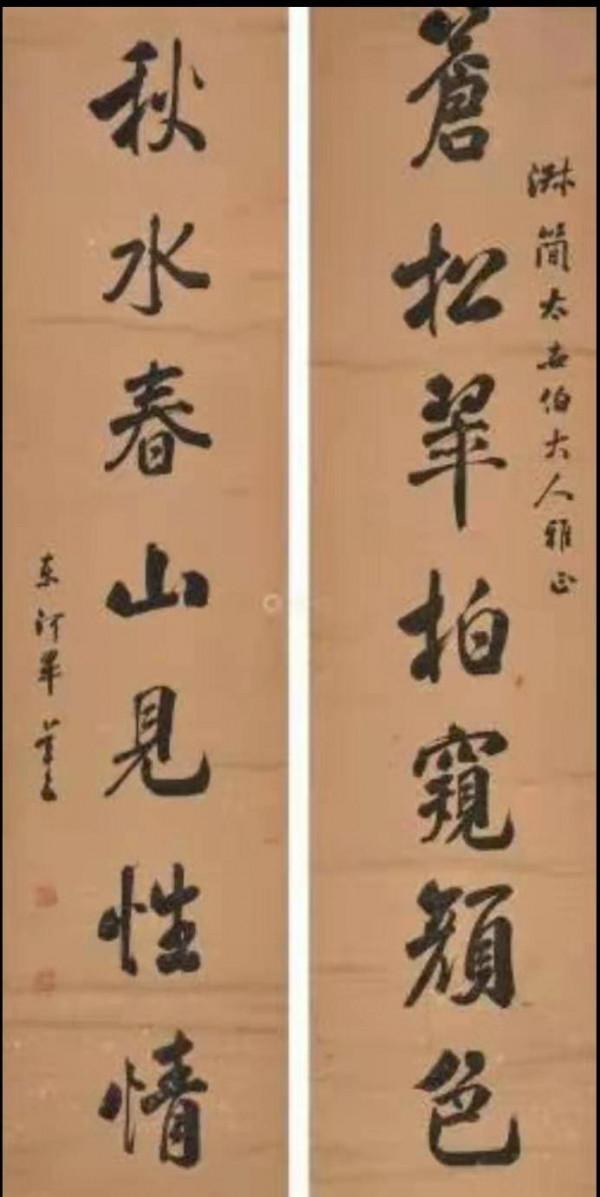 簡太世伯大人雅正
蒼松翠柏窺顏色
秋水春山見性情
东河